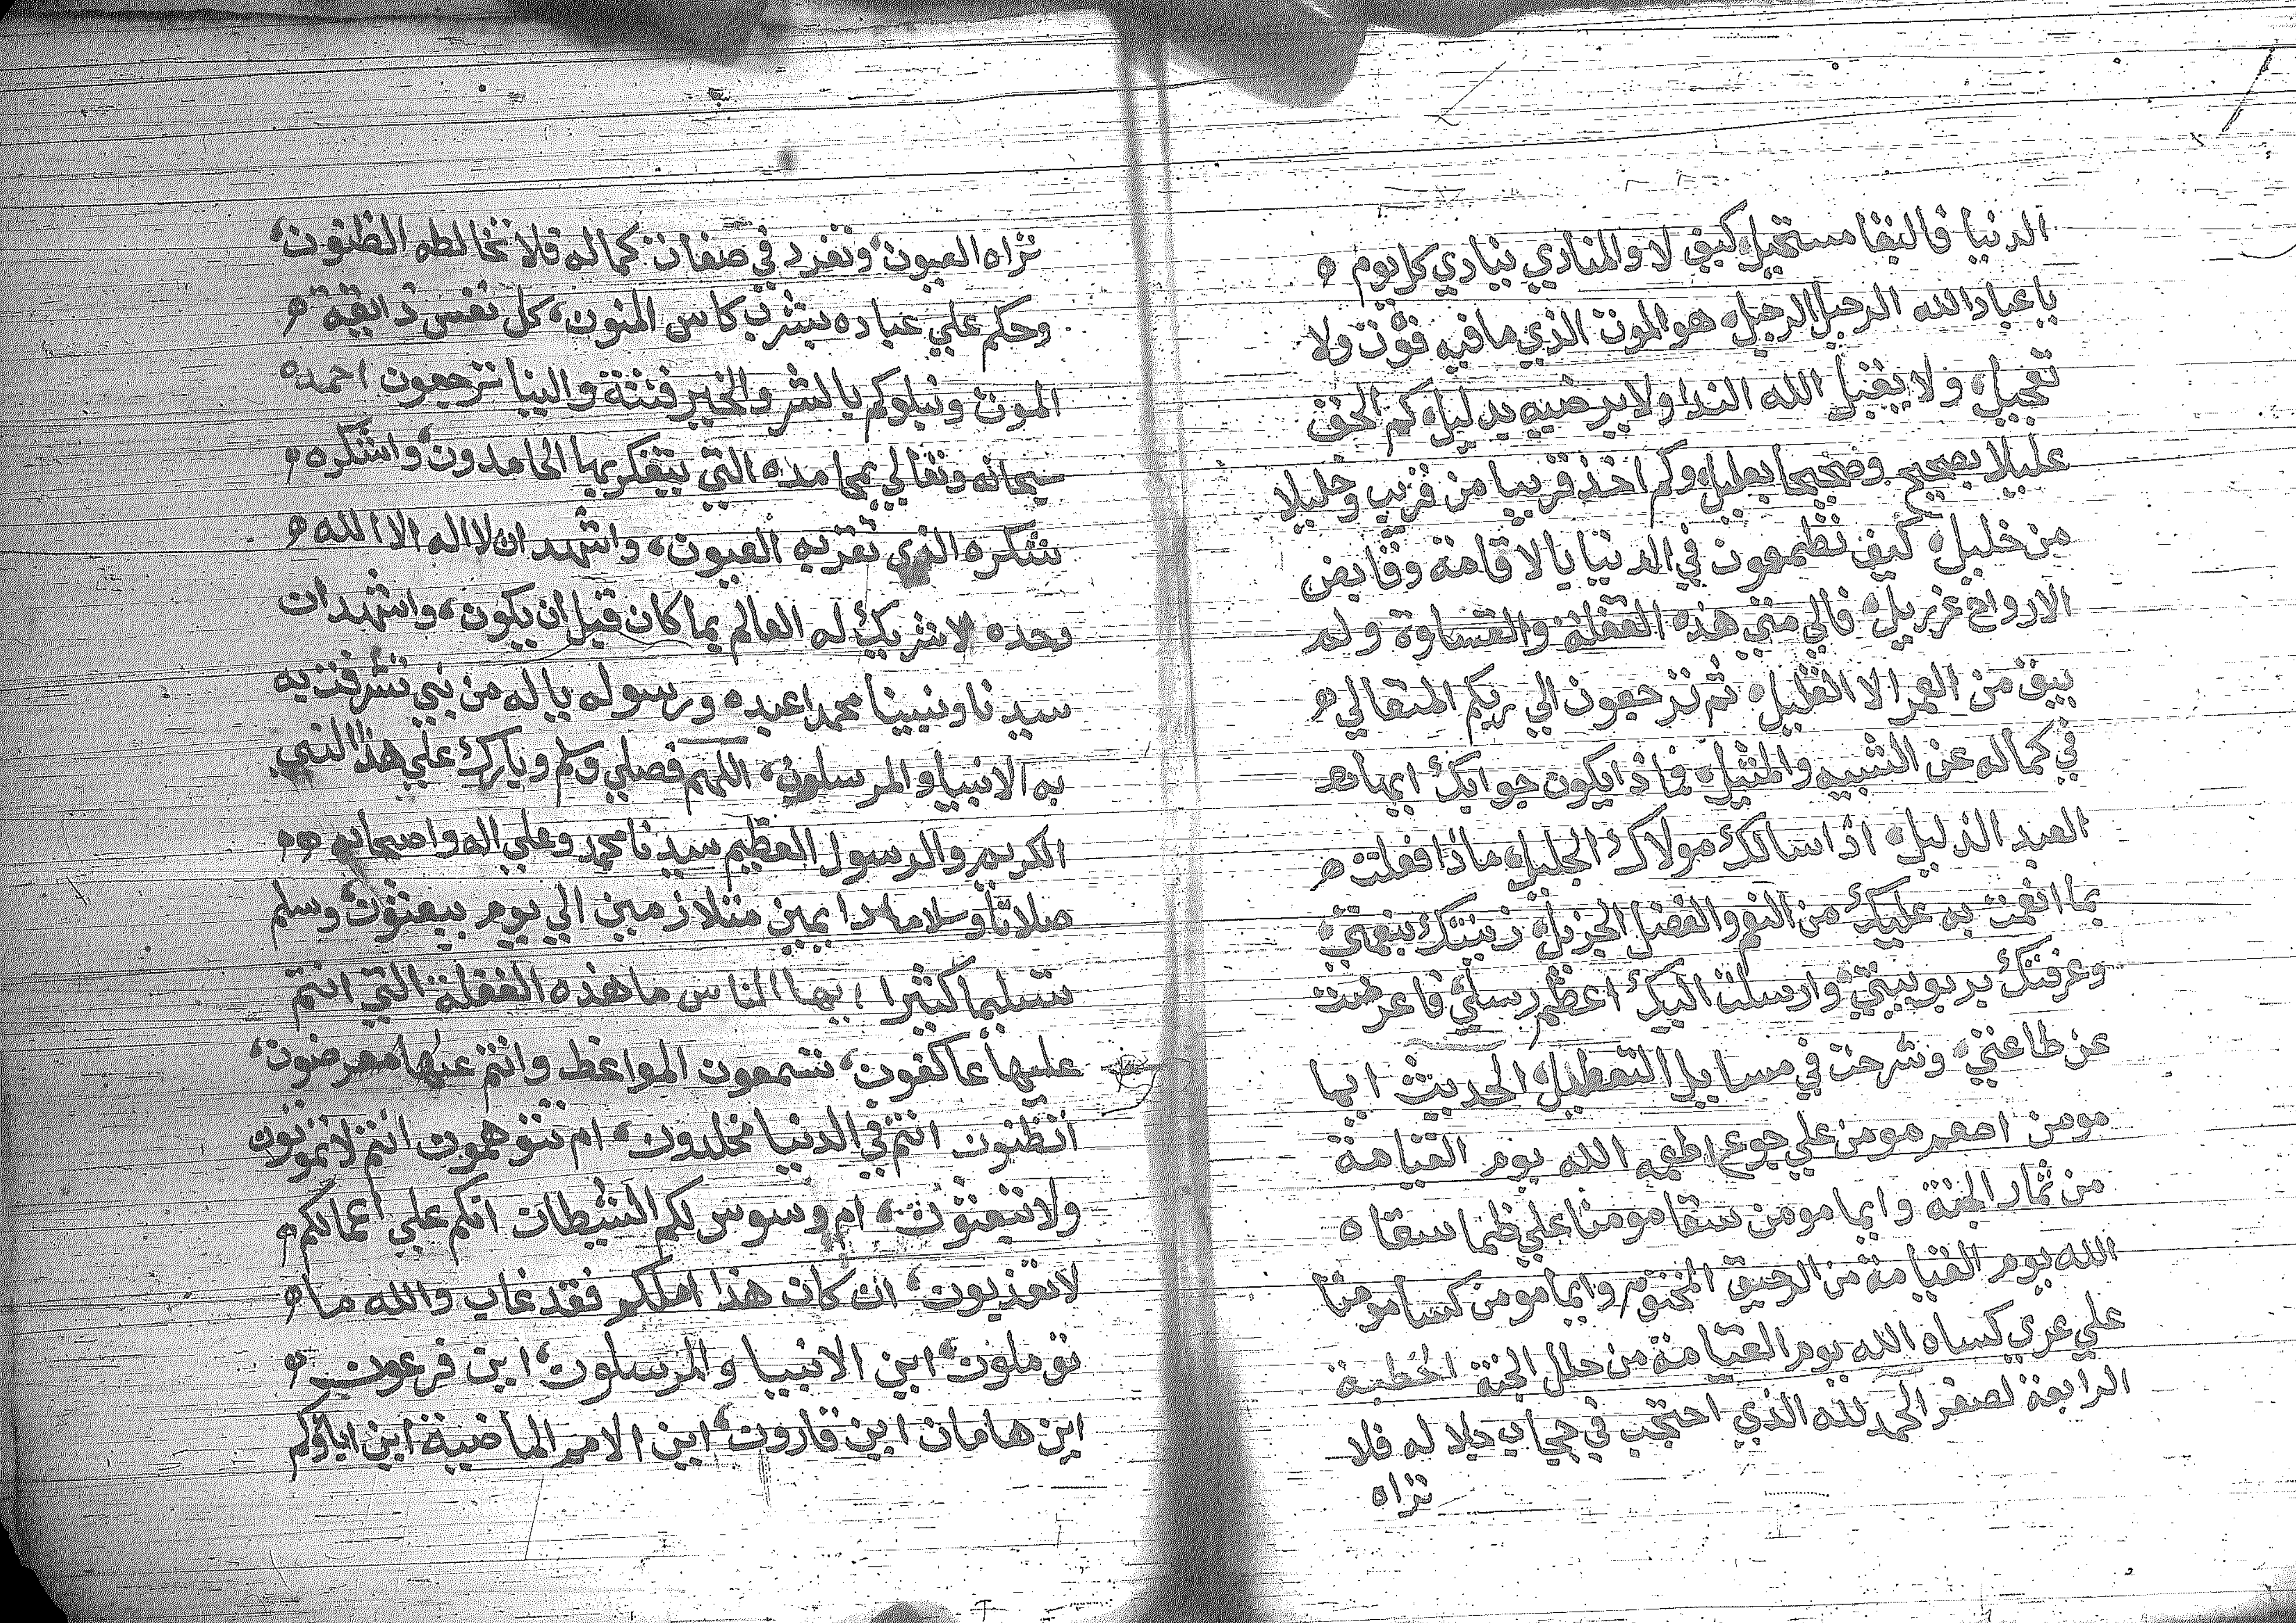 الدنيا فالبقا مستحيل كيف لا والمنادي ينادي كل يوم ه
يا عباد الله الرحيل الرحيل هو الموت الذي ما فيه فوت ولا
تعجيل ولا يقبل الله الندا ولا يرضيه بدليل كم الحق
عليلا بصحيح وصحيحا بعليل وكم اخذ قريبا من قريب وخليلا
من خليل كيف تطمعون في الدنيا بالاقامة وقابض
الارواح عزريل فالي متي هذه الغفلة والقساوة ولم
يبق من العمر الا القليل ثم ترجعون الي ربكم المتعالي ه
في كماله عن الشبيه والمثيل فماذا يكون جوابك ايها
العبد الذليل اذا سالك مولاك الجليل ماذا فعلت ه
بما انعمت به عليك من النعم والفضل الجزيل زينتك بنعمتي
وعرفتك بربوبيتي وارسلت اليك اعظم رسلي فاعرضت
عن طاعتي وشرحت في مسايل التعطيل الحديث ايما
مومن اطعم مومن علي جوع اطعمه الله يوم القيامة
من ثمار الجنة وايما مومن سقا مومنا علي ظما سقاه
الله يوم القيامة من الرحيق المختوم وايما مومن كسا مومنا
علي عري كساه الله يوم القيامة من حلل الجنة الخطبة
الرابعة لصفر الحمد لله الذي احتجب في حجاب جلاله فلا
تراه
تراه العيون وتفرد في صفات كماله فلا تخالطه الظنون
وحكم علي عباده بشرب كاس المنون كل نفس ذايقة ه
الموت ونبلوكم بالشر والخير فتنة والينا ترجعون احمده
سبحانه وتعالي بمحامده التي يتفكر بها الحامدون واشكره ه
شكره الذي تقر به العيون واشهد ان لا اله الا الله ه
وحده لا شريك له العالم بما كان قبل ان يكون واشهد ان
سيدنا ونبينا محمدا عبده ورسوله ياله من نبي تشرفت به
به الانبيا والمرسلون اللهم فصلي وسلم وبارك علي هذا النبي
الكريم والرسول العظيم سيدنا محمد وعلي اله واصحابه ه ه
صلاتا وسلاما دايمين متلازمين الي يوم يبعثون وسلم
تسليما كثيرا ايها الناس ما هذه الغفلة التي انتم
عليها عاكفون تسمعون المواعظ وانتم عنها معرضون
اتظنون انتم في الدنيا مخلدون ام تتوهمون انتم لا تموتون
ولا تبعثون ام وسوس لكم الشيطان انكم علي اعمالكم ه
لا تعذبون ان كان هذا املكم فقد غاب والله ما ه
توملون اين الانبيا والمرسلون اين فرعون ه
اين هامان اين قارون اين الامم الماضية اين اباوكم